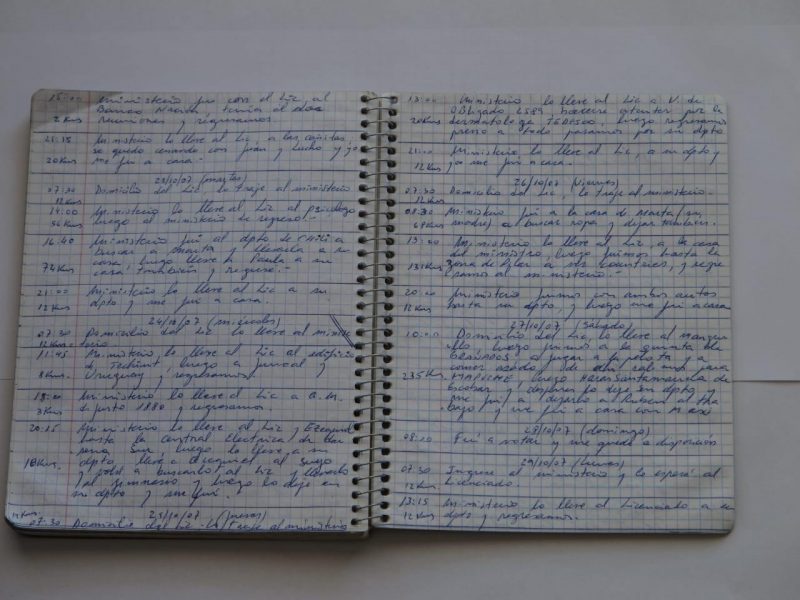 15:00 Ministerio fui con el Lic, al
Banco Nación, tenía el dos
2 Kms reuniones y regresamos.
21:15 Ministerio lo lleve al Lic, a las cañitas
se quedo cenando con Juan y Lucho y yo
20 Kms me fui a casa.-
23/10/07 (martes)
07:30 Domicilio del Lic lo traje al ministerio
12 Kms
14:00 Ministerio lo lleve al Lic al
56 Kms luego al ministerio de regreso.-
16:40 Ministerio fui al dpto de Chili a
buscar a Marta y llevarla a su
casa, luego lleve a Paula a su
74 Kms casa también y regrese.-
21:00 Ministerio lo lleve al Lic a su
12 Kms dpto y me fui a casa.
24/10/07 (miércoles)
07:30 Domicilio del Lic lo lleve al minis
12 Kms terio
11:45 Ministerio lo lleve al Lic al edificio
de Techint, luego a Juncal y
8 Kms. Uruguay y regresamos.
18:00 Ministerio lo lleve al Lic a
3 Kms 1880 y regresamos.
20:15 Ministerio lo lleve al Lic y Ezequiel
hasta la central electrica de
Sur, luego lo lleve a su
dpto, lleve a al
18 Kms. y volví a buscarlo al Lic y llevarlo
al gimnasio y luego lo deje en
su dpto y me fui.
25/10/07 (jueves)
07:30 Domicilio del Lic lo traje al ministerio
13:00 Ministerio lo lleve al Lic a V. de
Obligado 4589 hacerse atender por la
20 Kms dermatologa TEDESCO, luego regresamos
pasamos por su dpto
21:00 Ministerio lo lleve al Lic, a su dpto y
12 Kms yo me fui a casa.
26/10/07 (viernes)
07:30 Domicilio del Lic, lo traje al ministerio.-
12 Kms
08:30 Ministerio fui a la casa de Marta (su
64 Kms madre) a buscar ropa y dejar también.
13:00 Ministerio lo lleve al Lic, a la casa
del ministro, luego fuimos hasta la
zona de Pilar a ver countries, y regre
131 Kms samos al ministerio.-
20:00 Ministerio fuimos con ambos autos
12 Kms hasta su dpto, y luego me fui a casa
27/10/07 (Sábado)
10:00 Domicilio del Lic, lo lleve al
luego fuimos a la quinta de
a jugar a la pelota y a
comer asado, de ahí salimos para
235 Kms MAPUCHE luego Haras Santa María de
Escobar y despues lo deje en dpto y
me fui a dejarlo a Ruben al tra
bajo y me fui a casa con Maxi
28/10/07 (domingo)
08:10 Fui a votar y me quede a disposicion
29/10/07 (lunes)
07:30 Ingrese al ministerio y lo espere al
12 Kms Licenciado.
13:15 Ministerio lo lleve al Licenciado a su
12 Kms dpto y regresamos.